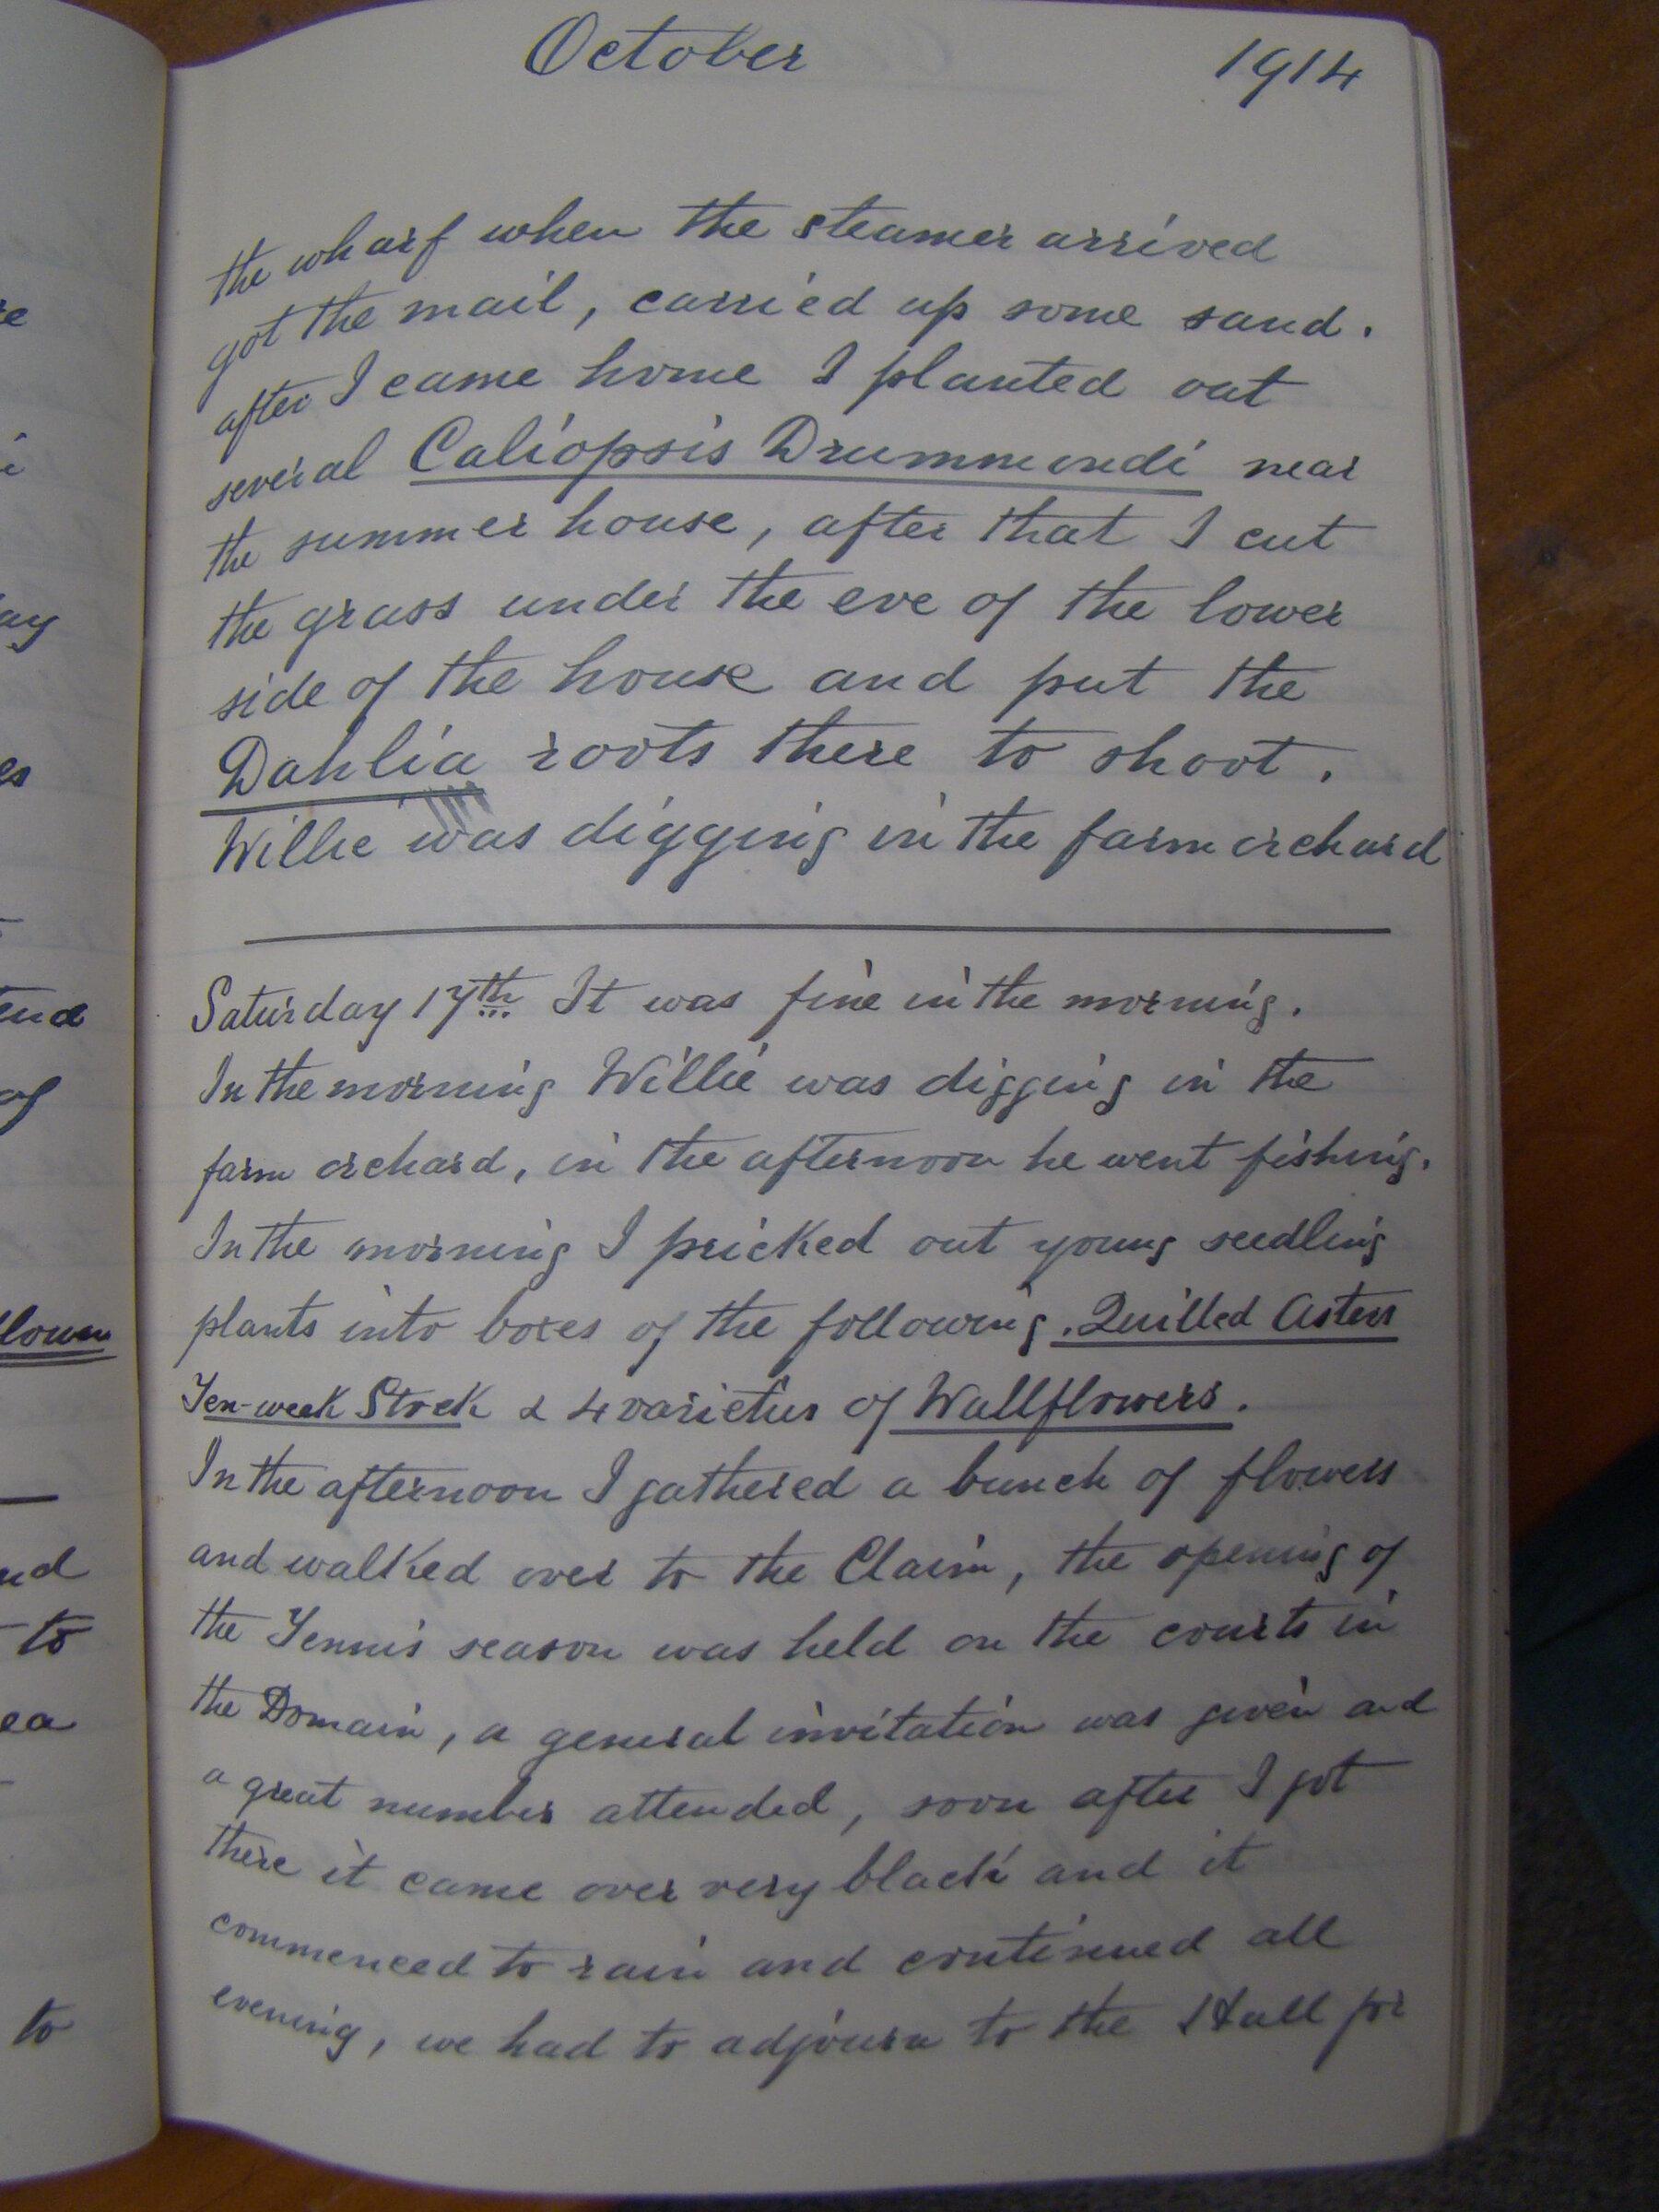 October 1914
the wharf when the steamer arrived
got the mail, carried up some sand.
after I came home I planted out
several Caliopsis Drummondi near
the summer house, after that I cut
the grass under the eve of the lower
side of the house and put the
Dahlia roots there to shoot.
Willie was digging in the farm orchard
Saturday 17th It was fine in the morning.
In the morning Willie was digging in the
farm orchard, in the afternoon he went fishing.
In the morning I pricked out young seedling
plants into boxes of the following. Quilled Asters
Ten-week Stock & 4 varieties of Wallflowers.
In the afternoon I gathered a bunch of flowers
and walked over to the Claim, the opening of
the Tennis season was held on the courts in
the Domain, a general invitation was given and
a great number attended, soon after I got
there it came over very black and it
commenced to rain and continued all
evening, we had to adjourn to the Hall for